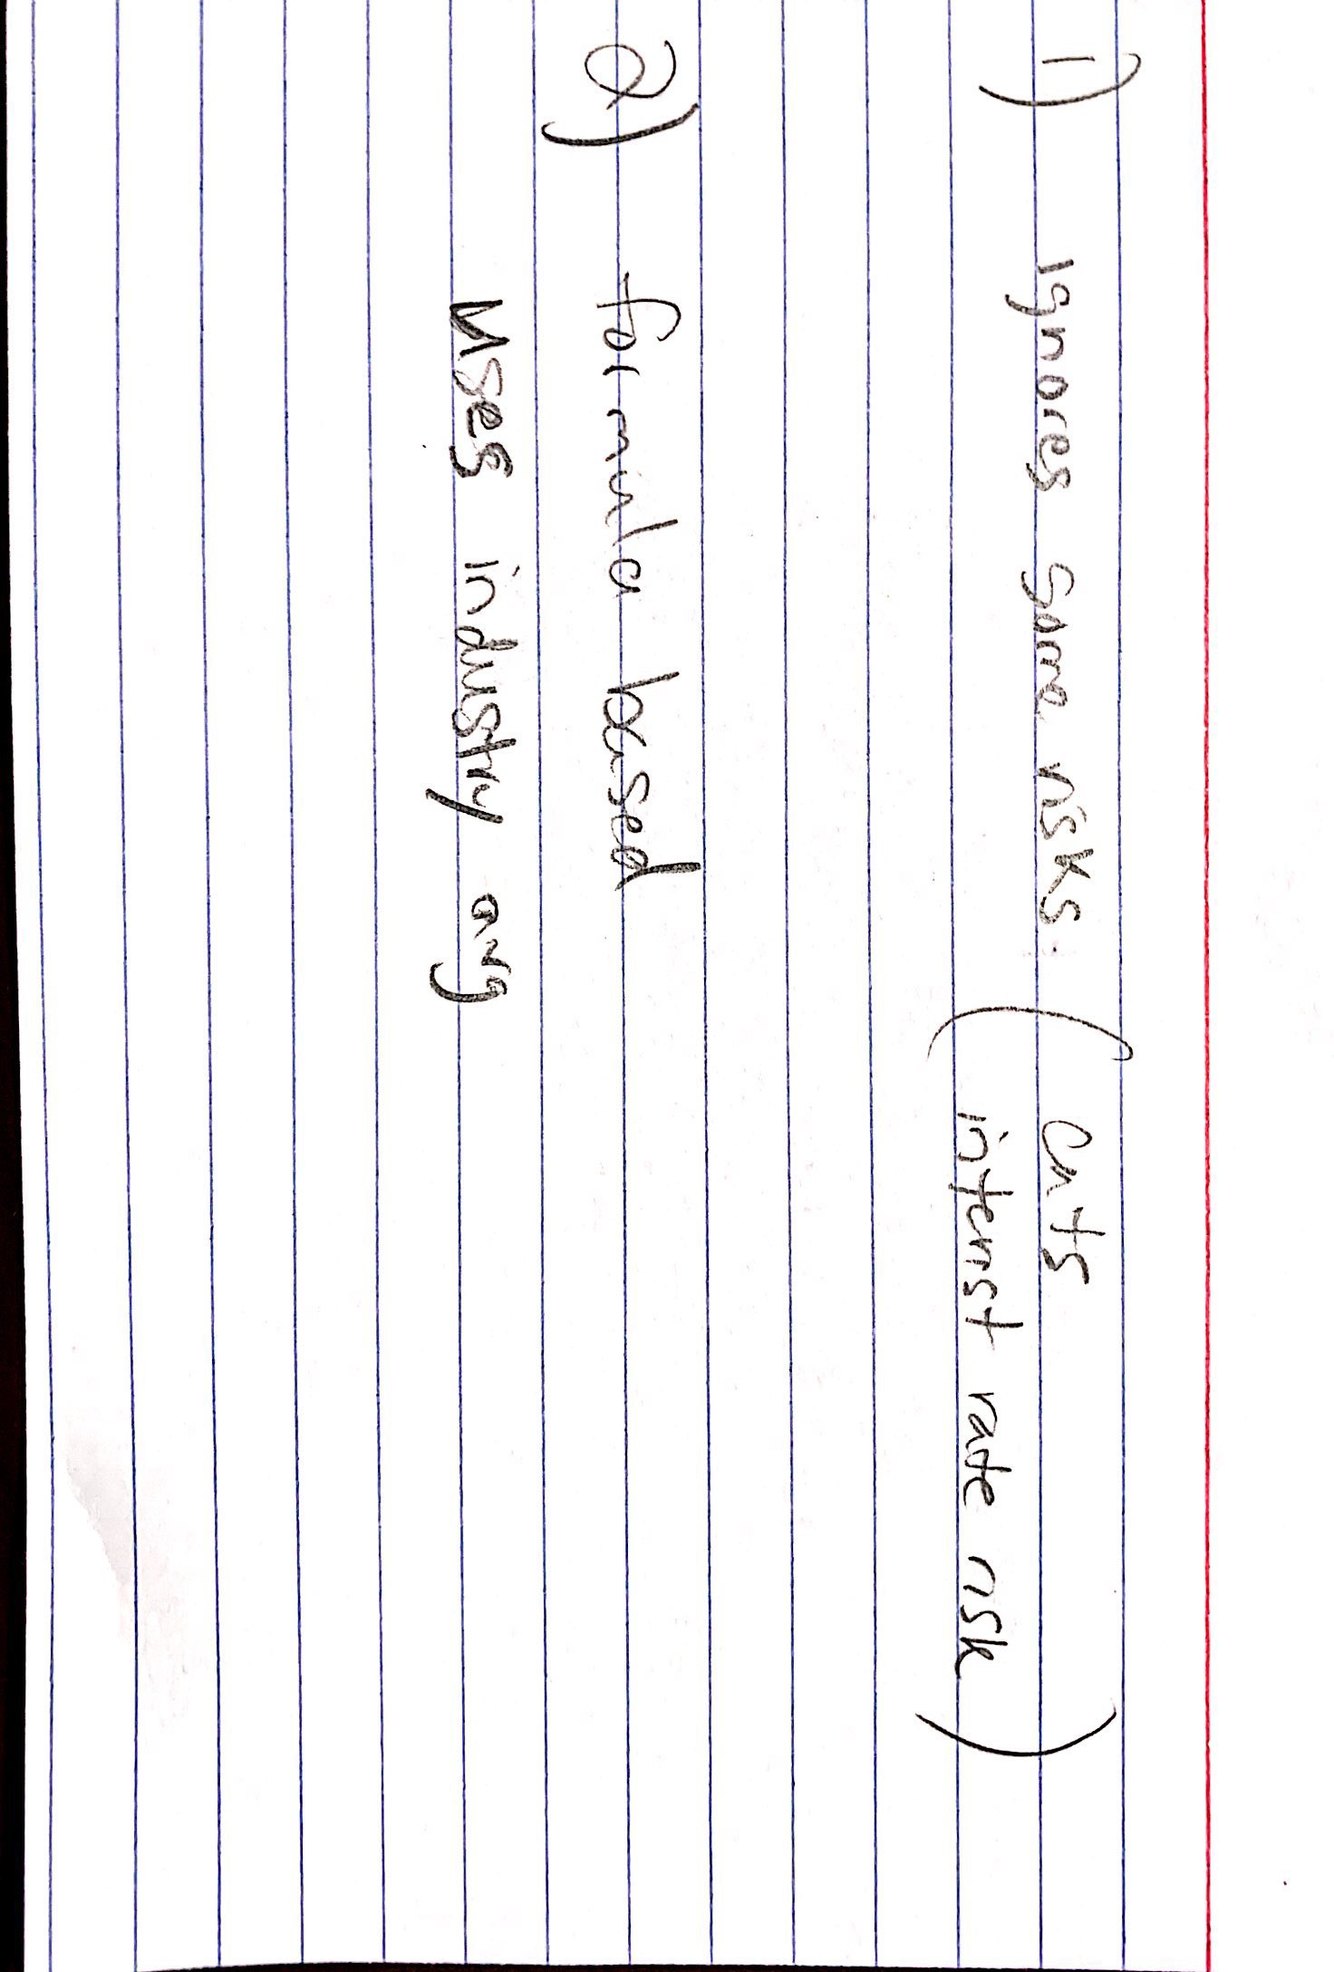 1) ignores some risks. (cats
interest rate risk)
2) formula based
uses industry avg